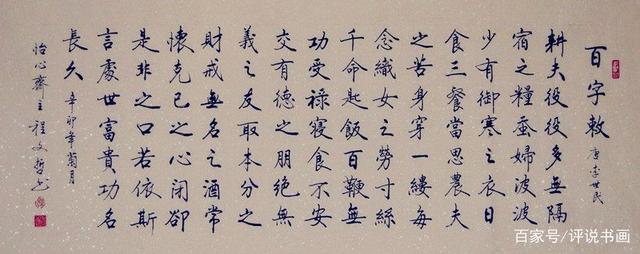 百字敕 唐李世民
耕夫役役多無隔
宿之糧蚕婦波波
少有御寒之衣日
食三餐當思農夫
之苦身穿一縷每
念織女之勞寸絲
千命匙飯百鞭無
功受祿寢食不安
交有德之朋絕無
義之友取本分之
財戒無名之酒常
懷克己之心閉卻
是非之口若依斯
言處世富貴功名
長久 辛卯年菊月
怡心齋主程文哲书
百家号/评说书画